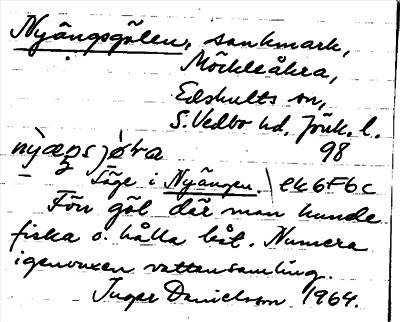 Nyängsgölen, sankmark,
Möckleåkra,
Edshults sn,
S. Vedbo hd, Jönk. l.
98
Läge i Nyängen. ek6F6c
Förr göl där man kunde
fiska o. hålla båt. Numera
igenvuxen vattensamling.
Inger Danielsson 1964.